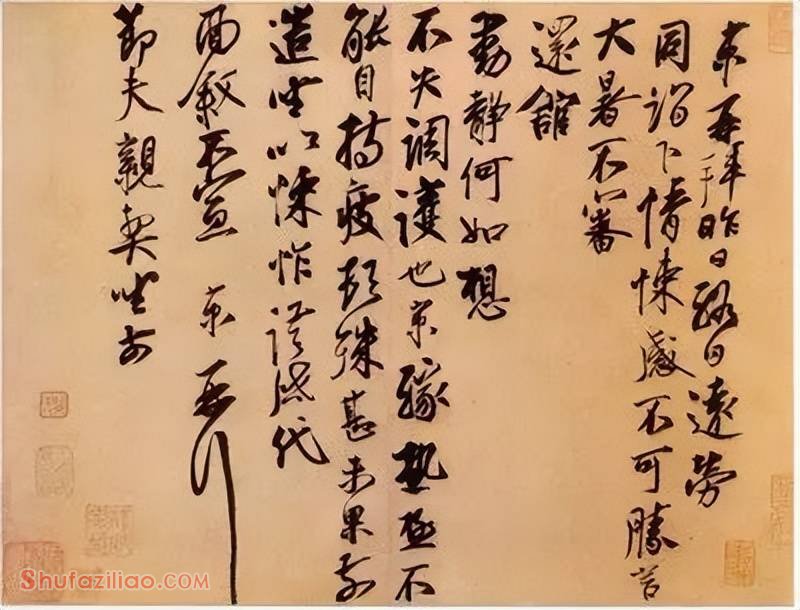 京再拜昨日終日遠勞
同詣下情悚感不可勝言
大暑不審
還館
動靜何如想
不失調護也京緣熱極不
能自持疲頓殊甚未果前
造坐以悚怍謹啟代
面敘不宣 京再拜
節夫親契坐前
Shufaziliao.COM